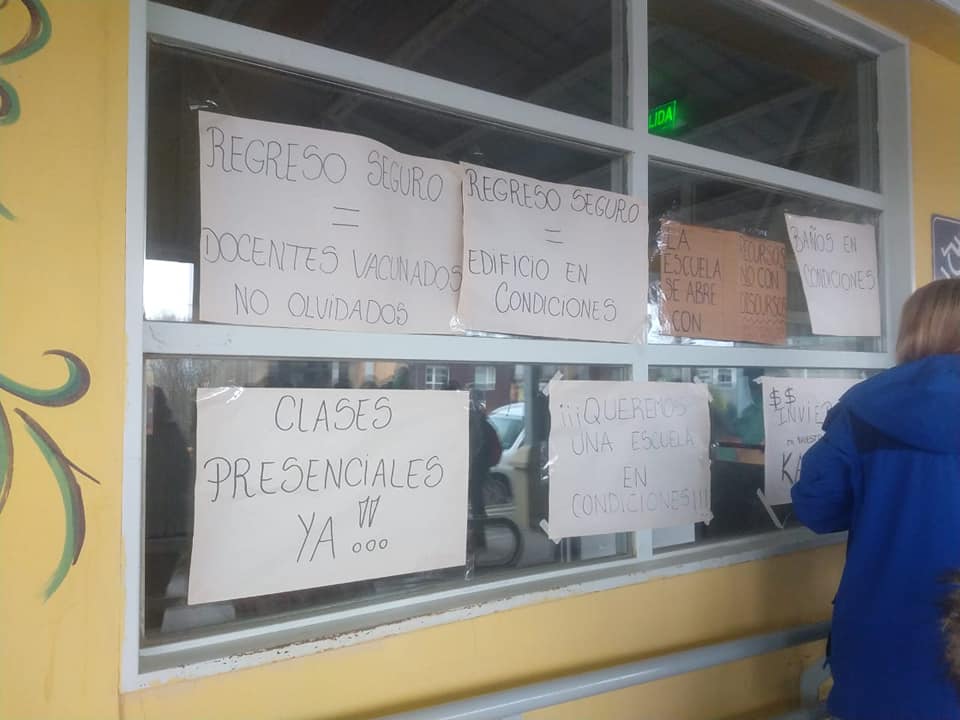 REGRESO SEGURO
=
DOCENTES VACUNADOS
NO OLVIDADOS
REGRESO SEGURO
=
EDIFICIO EN
CONDICIONES
LA
ESCUELA
SE ABRE
CON
RECURSOS
NO CON
DISCURSOS
BAÑOS EN
CONDICIONES
CLASES
PRESENCIALES
YA !!
¡¡¡QUEREMOS
UNA ESCUELA
EN
CONDICIONES!!!
$$